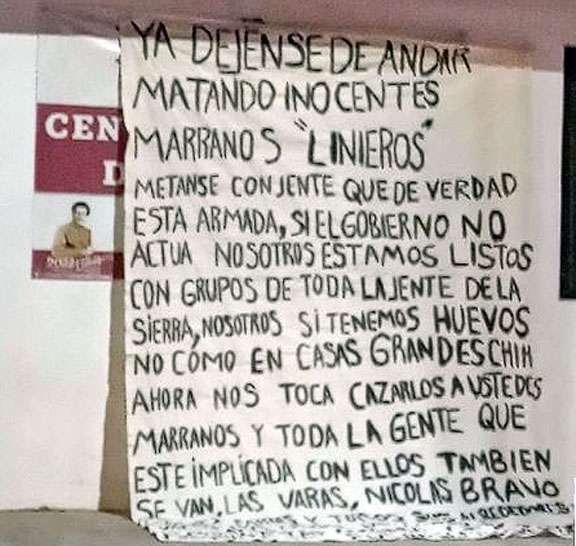 YA DEJENSE DE ANDAR
MATANDO INOCENTES
MARRANOS "LINIEROS"
METANSE CON JENTE QUE DE VERDAD
ESTA ARMADA, SI EL GOBIERNO NO
ACTUA NOSOTROS ESTAMOS LISTOS
CON GRUPOS DE TODA LA JENTE DE LA
SIERRA, NOSOTROS SI TENEMOS HUEVOS
NO COMO EN CASAS GRANDES CHIH
AHORA NOS TOCA CAZARLOS A USTEDES
MARRANOS Y TODA LA GENTE QUE
ESTE IMPLICADA CON ELLOS TAMBIEN
SE VAN, LAS VARAS, NICOLAS BRAVO
CEN
D